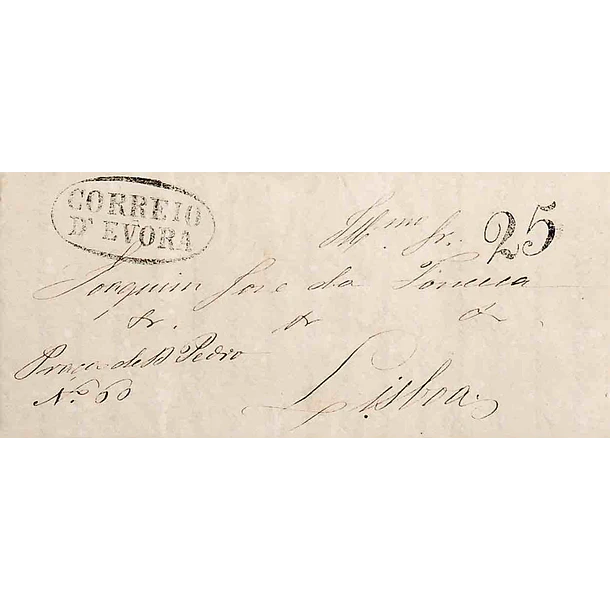 CORREIO
D'EVORA
Illmo. Sr. 25
Joaquim Jose da Fonseca
&r. &r &
Praça de D Pedro
No. 60
Lisboa